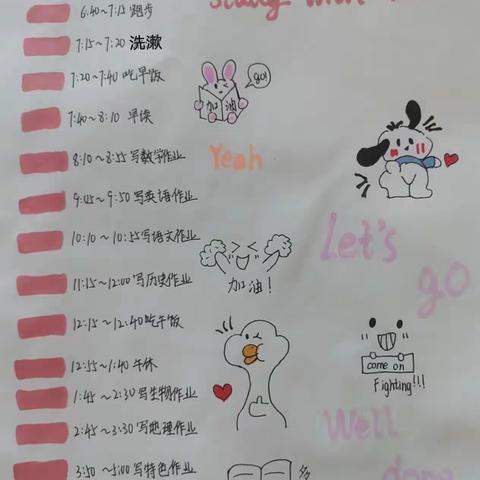 6:40~7:15 跑步
Study With
7:15~7:20 洗漱
7:20~7:40 吃早饭
go!
加油
7:40~8:10 早读
8:10~8:55 写数学作业
Yeah
9:05~9:50 写英语作业
10:10~10:55 写语文作业
Let's
go
11:15~12:00 写历史作业
加油!
12:15~12:40 吃午饭
come on
Fighting!!!
12:55~1:40 午休
1:45~2:30 写生物作业
2:45~3:30 写地理作业
Well
done
3:50~5:00 写特色作业